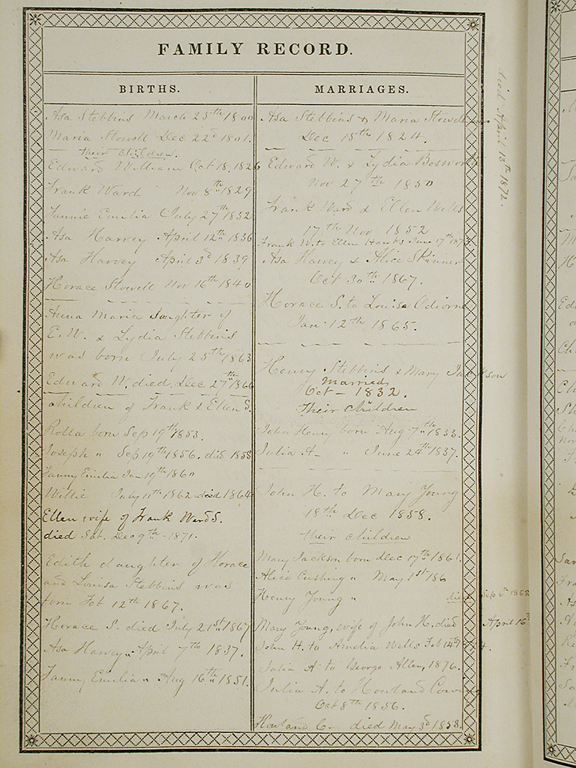 FAMILY RECORD.
BIRTHS.
Asa Stebbins March 25th 1800
Maria Stowell Dec 22d 1801.
their children.
Edward William Oct 18, 1826
Frank Ward Nov 8th 1829
Fannie Emelia July 27th 1832
Asa Harvey April 12th 1836
Asa Harvey April 3d 1839
Horace Stowell Nov 16th 1840
Anna Maria daughter of
E. W. & Lydia Stebbins
was born July 25th 1863
Edward W. died, Dec 27th 1866
Children of Frank & Ellen S.
Rolla born Sep 19th 1853.
Joseph " Sep 19th 1856. died 1858
Fanny Emilia Jan 19th 1860
Willie July 11th 1862 died 1864
Ellen wife of Frank Ward S.
died Sat. Dec 9th - 1871.
Edith daughter of Horace
and Louisa Stebbins was
born Feb 12th 1867.
Horace S. died July 21st 1867
Asa Harvey " April 7th 1837.
Fanny Emilia " Aug 16th 1851.
MARRIAGES.
Asa Stebbins & Maria Stowell
Dec 15th 1824.
Edward W. & Lydia Bosworth
Nov 27th 1850
Frank Ward & Ellen Wells
17th Nov 1852
Frank W. to Ellen Hanks June 17th
Asa Harvey & Alice Skinner
Oct 30th 1867.
Horace S. to Louisa Odiorne
Jan 12th 1865.
Henry Stebbins & Mary Jackson
married
Oct - 1832.
their children
John Henry born Aug 7th 1833.
Julia A. " June 24th 1837.
John H. to Mary Young
18th Dec 1858.
their children
Mary Jackson born Dec 17th 1861.
Alice Cushing " May 1st 186
Henry Young " died Sep
Mary Young, wife of John H. died April
John H. to Amelia Wells Feb 14th
Julia A to George Allen, 1876.
Julia A. to Howland
Oct 8th 1856.
died May 3d 1858.
died April 13th 1872.